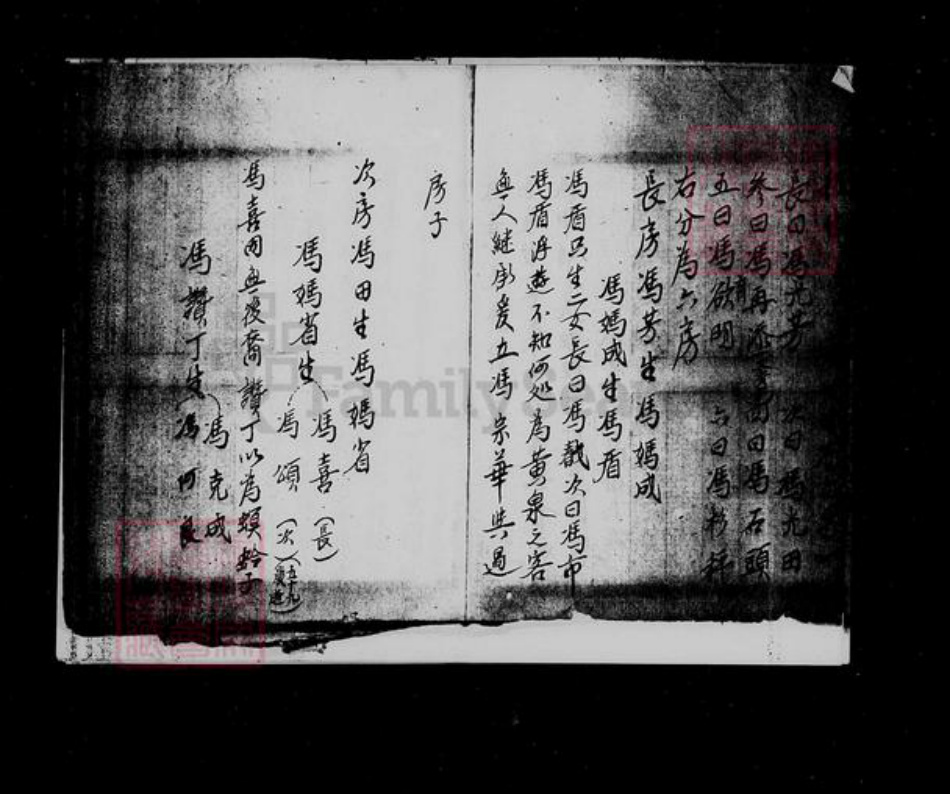 長曰馮光芳 次曰馮光田
參曰馮再添 四曰馮石頭
五曰馮啟明 六曰馮
右分為六房
長房馮芳生馮媽成
馮媽成生馮盾
馮盾只生二女長曰馮戲次曰馮市
馮盾再遊不知何処為黃泉之客
無人継承爰立馮宗華與過
房子
次房馮田生馮媽省
馮媽省生 馮喜(長)
馮頌(次)
馮喜因無後裔讚丁以為螟蛉子
馮讚丁生 馮克成
馮阿良
FamilySearch